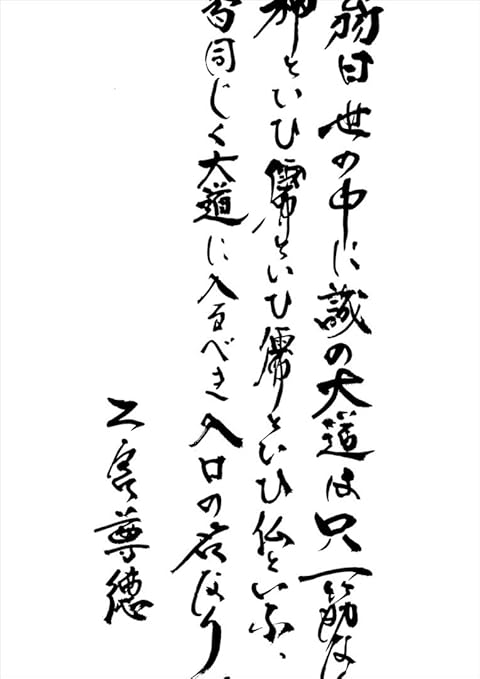 翁曰世の中に誠の大道は只一筋な
神といひ儒といひ儒といひ仏といふ、
皆同じく大道に入るべき入口の名なり
二宮尊徳